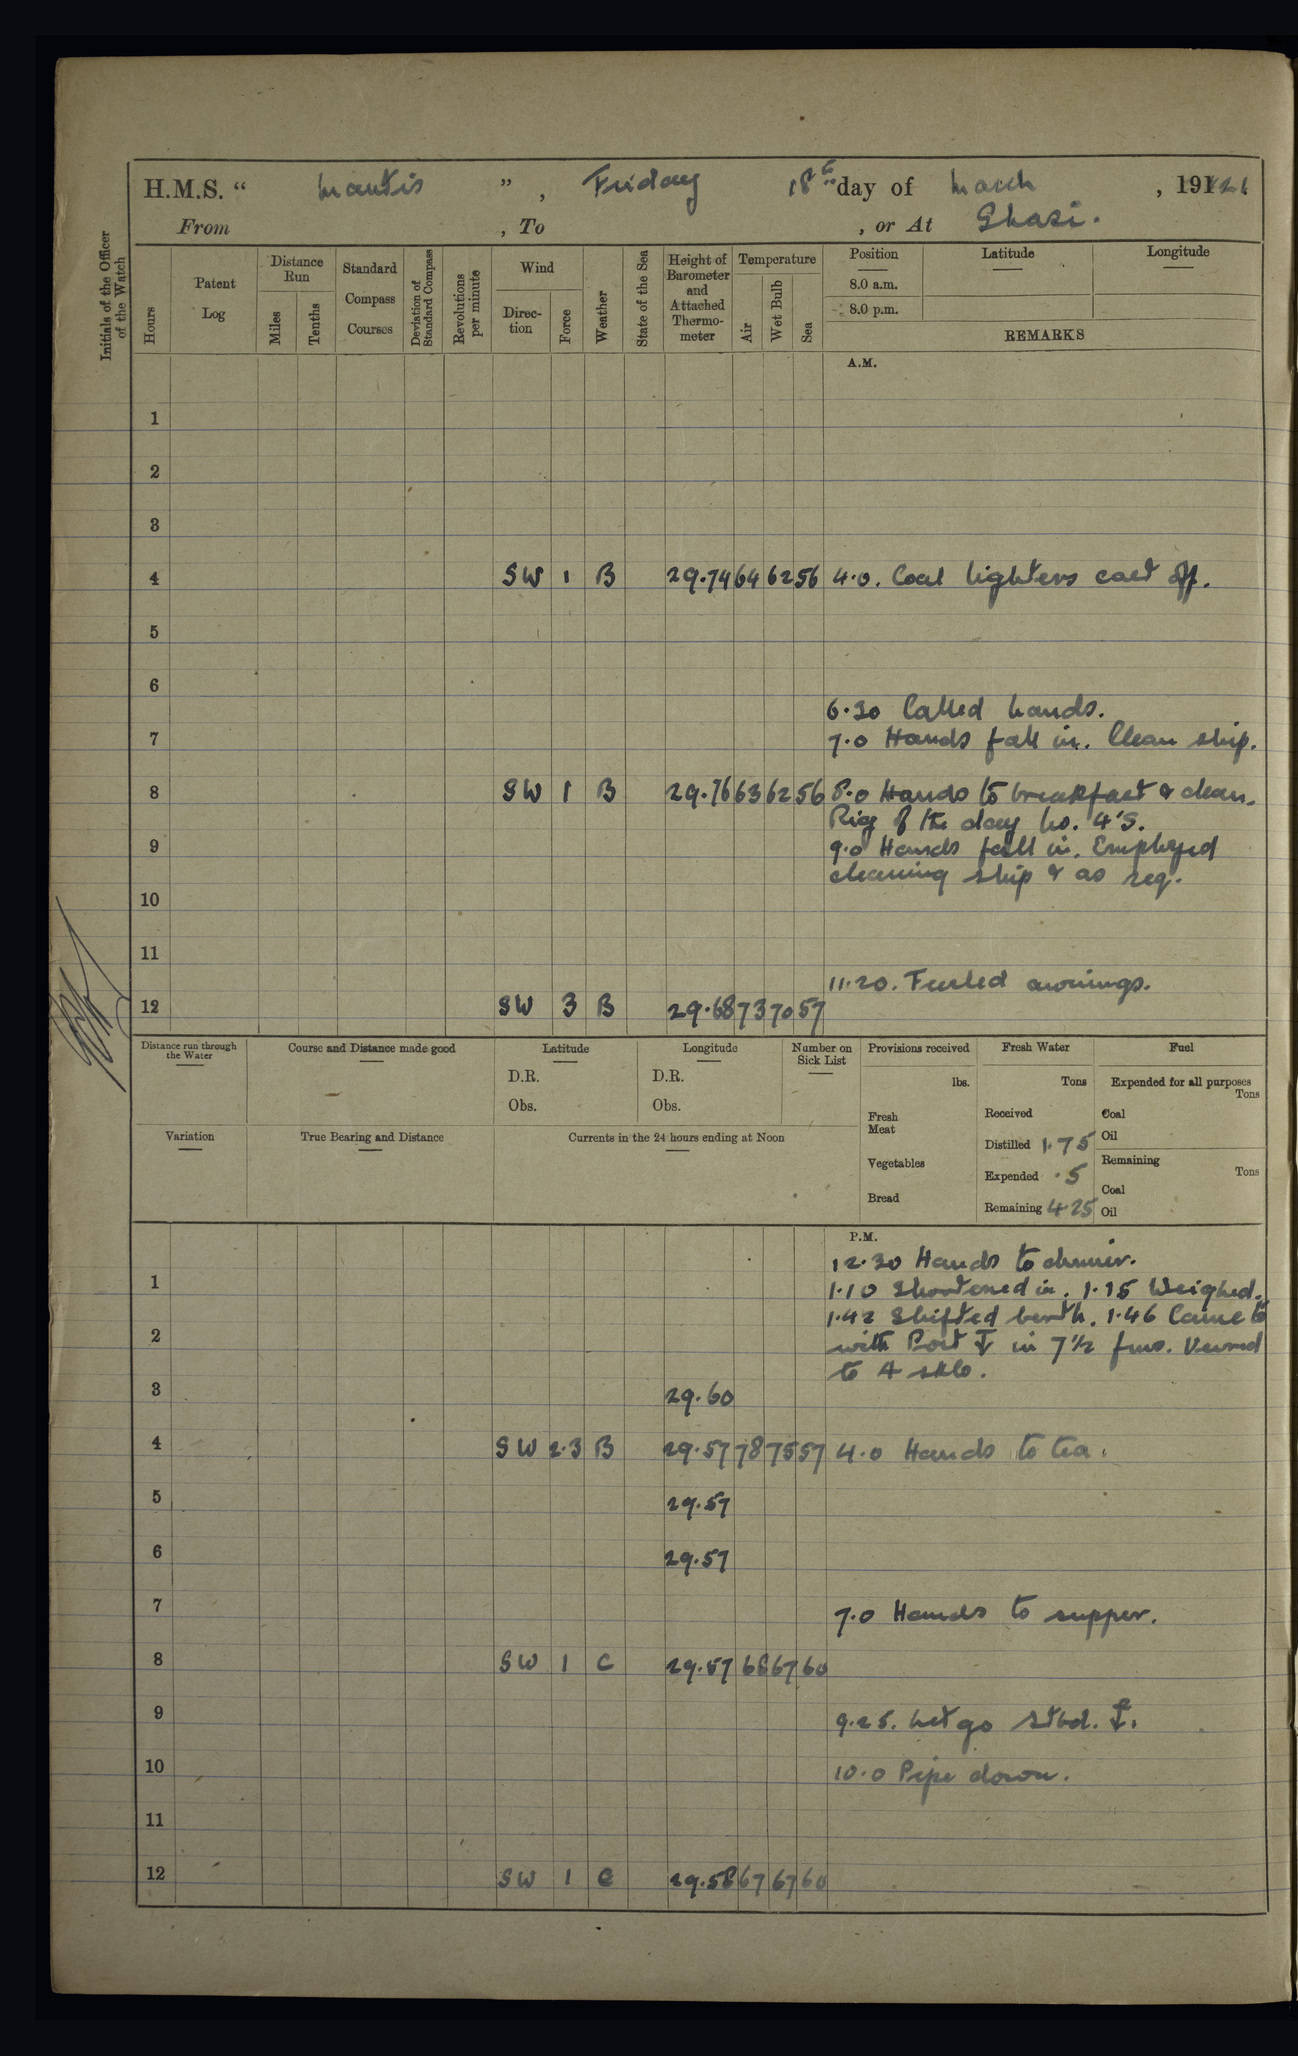 H.M.S. “ Mantis ” , Friday 18th day of March , 191 1921
From , To , or At Ghazi.
Initials of the Officer of the Watch
Hours
Patent Log
Distance Run
Miles
Tenths
Standard Compass Courses
Deviation of Standard Compass
Revolutions per minute
Wind
Direction
Force
Weather
State of the Sea
Height of Barometer and Attached Thermometer
Temperature
Air
Wet Bulb
Sea
Position
8.0 a.m.
8.0 p.m.
Latitude
Longitude
REMARKS
A.M.
1
2
3
4 SW 1 B 29.74 64 62 56 4.0. Coal lighters cast off.
5
6
6.30 Called hands.
7 7.0 Hands fall in. Clean ship.
8 SW 1 B 29.76 63 62 56 8.0 Hands to breakfast & clean.
Rig of the day No. 4's.
9 9.0 Hands fall in. Employed
cleaning ship & as req.
10
11
11.20. Furled awnings.
12 SW 3 B 29.68 73 70 57
Distance run through the Water
Course and Distance made good
Latitude
D.R.
Obs.
Longitude
D.R.
Obs.
Number on Sick List
Provisions received
lbs.
Fresh Meat
Vegetables
Bread
Fresh Water
Tons
Received
Distilled 1.75
Expended .5
Remaining 4.25
Fuel
Expended for all purposes
Tons
Coal
Oil
Remaining
Tons
Coal
Oil
Variation
True Bearing and Distance
Currents in the 24 hours ending at Noon
P.M.
12.30 Hands to dinner.
1 1.10 Shortened in. 1.15 Weighed.
1.42 Shifted berth. 1.46 Came to
2 with Port ⚓ in 7½ fms. Veered
to 4 shks.
3 29.60
4 SW 2.3 B 29.57 78 75 57 4.0 Hands to tea.
5 29.57
6 29.57
7 7.0 Hands to supper.
8 SW 1 C 29.57 68 67 60
9 9.25. Let go Stbd. ⚓.
10 10.0 Pipe down.
11
12 SW 1 C 29.58 67 67 60